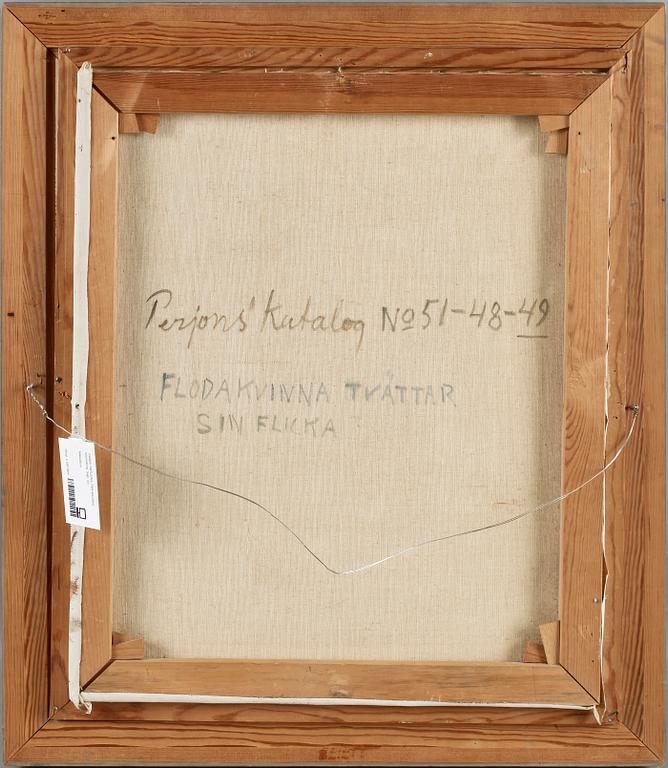 Perjons' Katalog No 51-48-49
FLODAKVINNA TVÄTTAR
SIN FLICKA